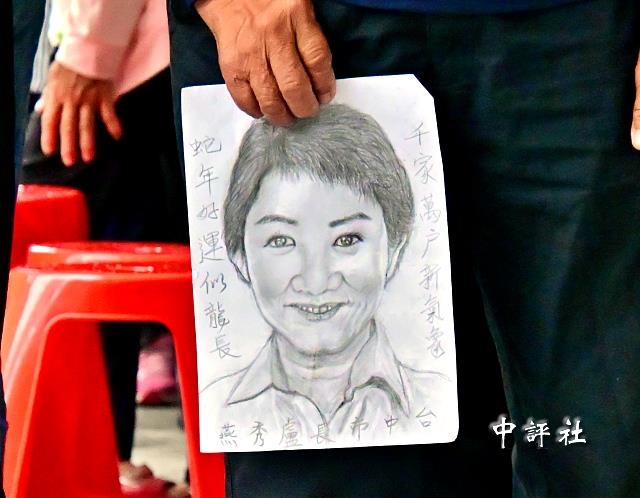 千家萬户新氣象
蛇年好運似龍長
台中市長盧秀燕
中評社